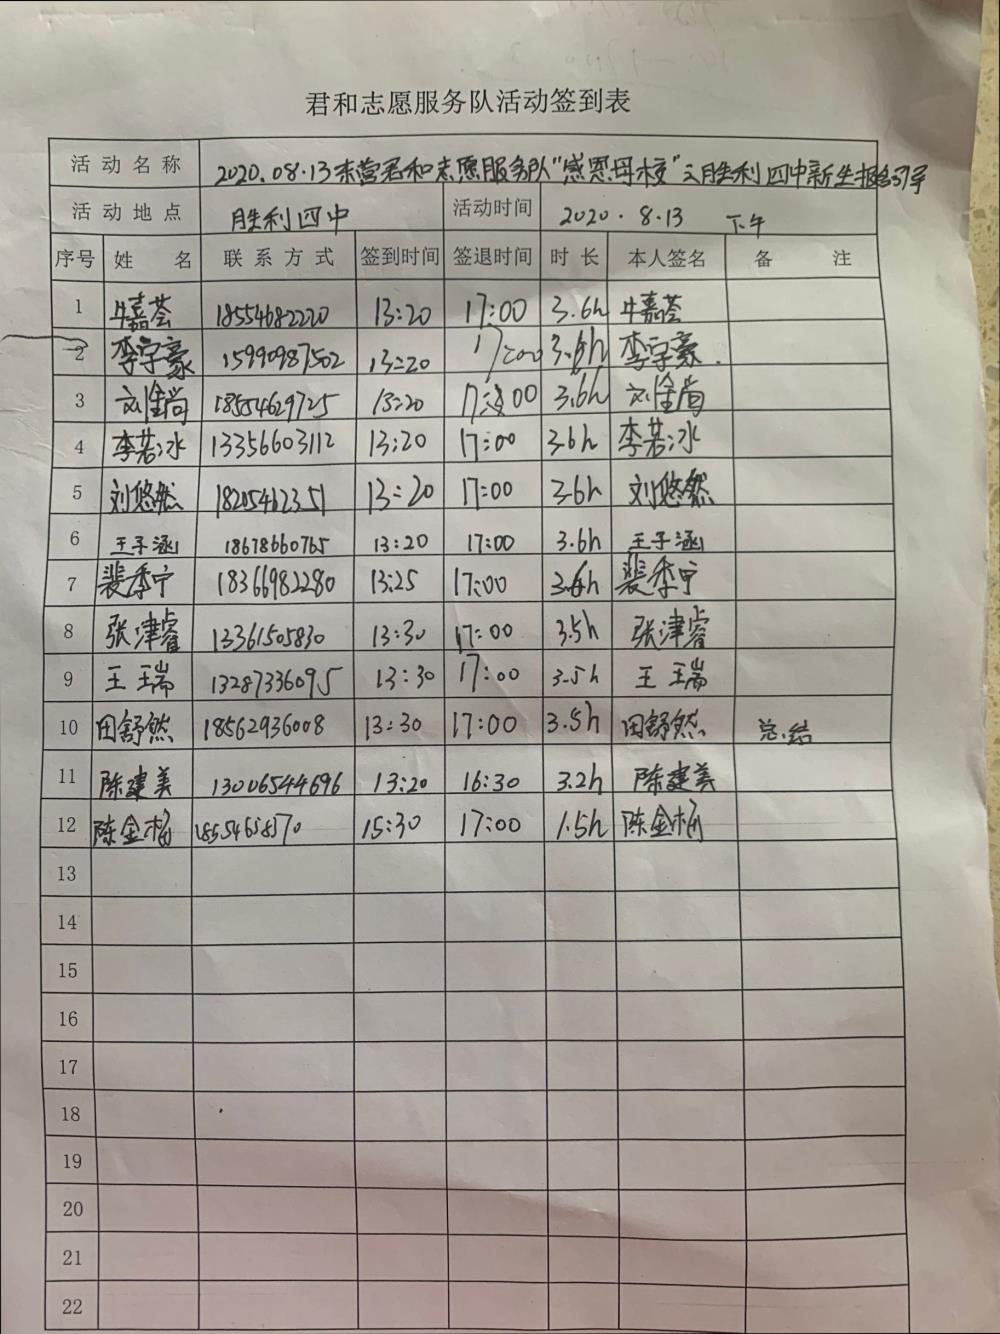 君和志愿服务队活动签到表
活动名称 2020.08.13东营君和志愿服务队"感恩母校"之胜利四中新生报名引导
活动地点 胜利四中 活动时间 2020.8.13 下午
序号 姓名 联系方式 签到时间 签退时间 时长 本人签名 备注
1 牛嘉荟 18554682220 13:20 17:00 3.6h 牛嘉荟
2 李宇豪 15990987502 13:20 17:00 3.6h 李宇豪
3 刘鎧尚 18554629725 13:20 17:00 3.6h 刘鎧尚
4 李若冰 13356603112 13:20 17:00 3.6h 李若冰
5 刘悠然 18205462351 13:20 17:00 3.6h 刘悠然
6 王子涵 18678660765 13:20 17:00 3.6h 王子涵
7 裴季宁 18366982280 13:25 17:00 3.6h 裴季宁
8 张津睿 13361505830 13:30 17:00 3.5h 张津睿
9 王瑞 13287336095 13:30 17:00 3.5h 王瑞
10 田舒然 18562936008 13:30 17:00 3.5h 田舒然 总结
11 陈建美 13006544696 13:20 16:30 3.2h 陈建美
12 陈金 15:30 17:00 1.5h 陈金
13
14
15
16
17
18
19
20
21
22